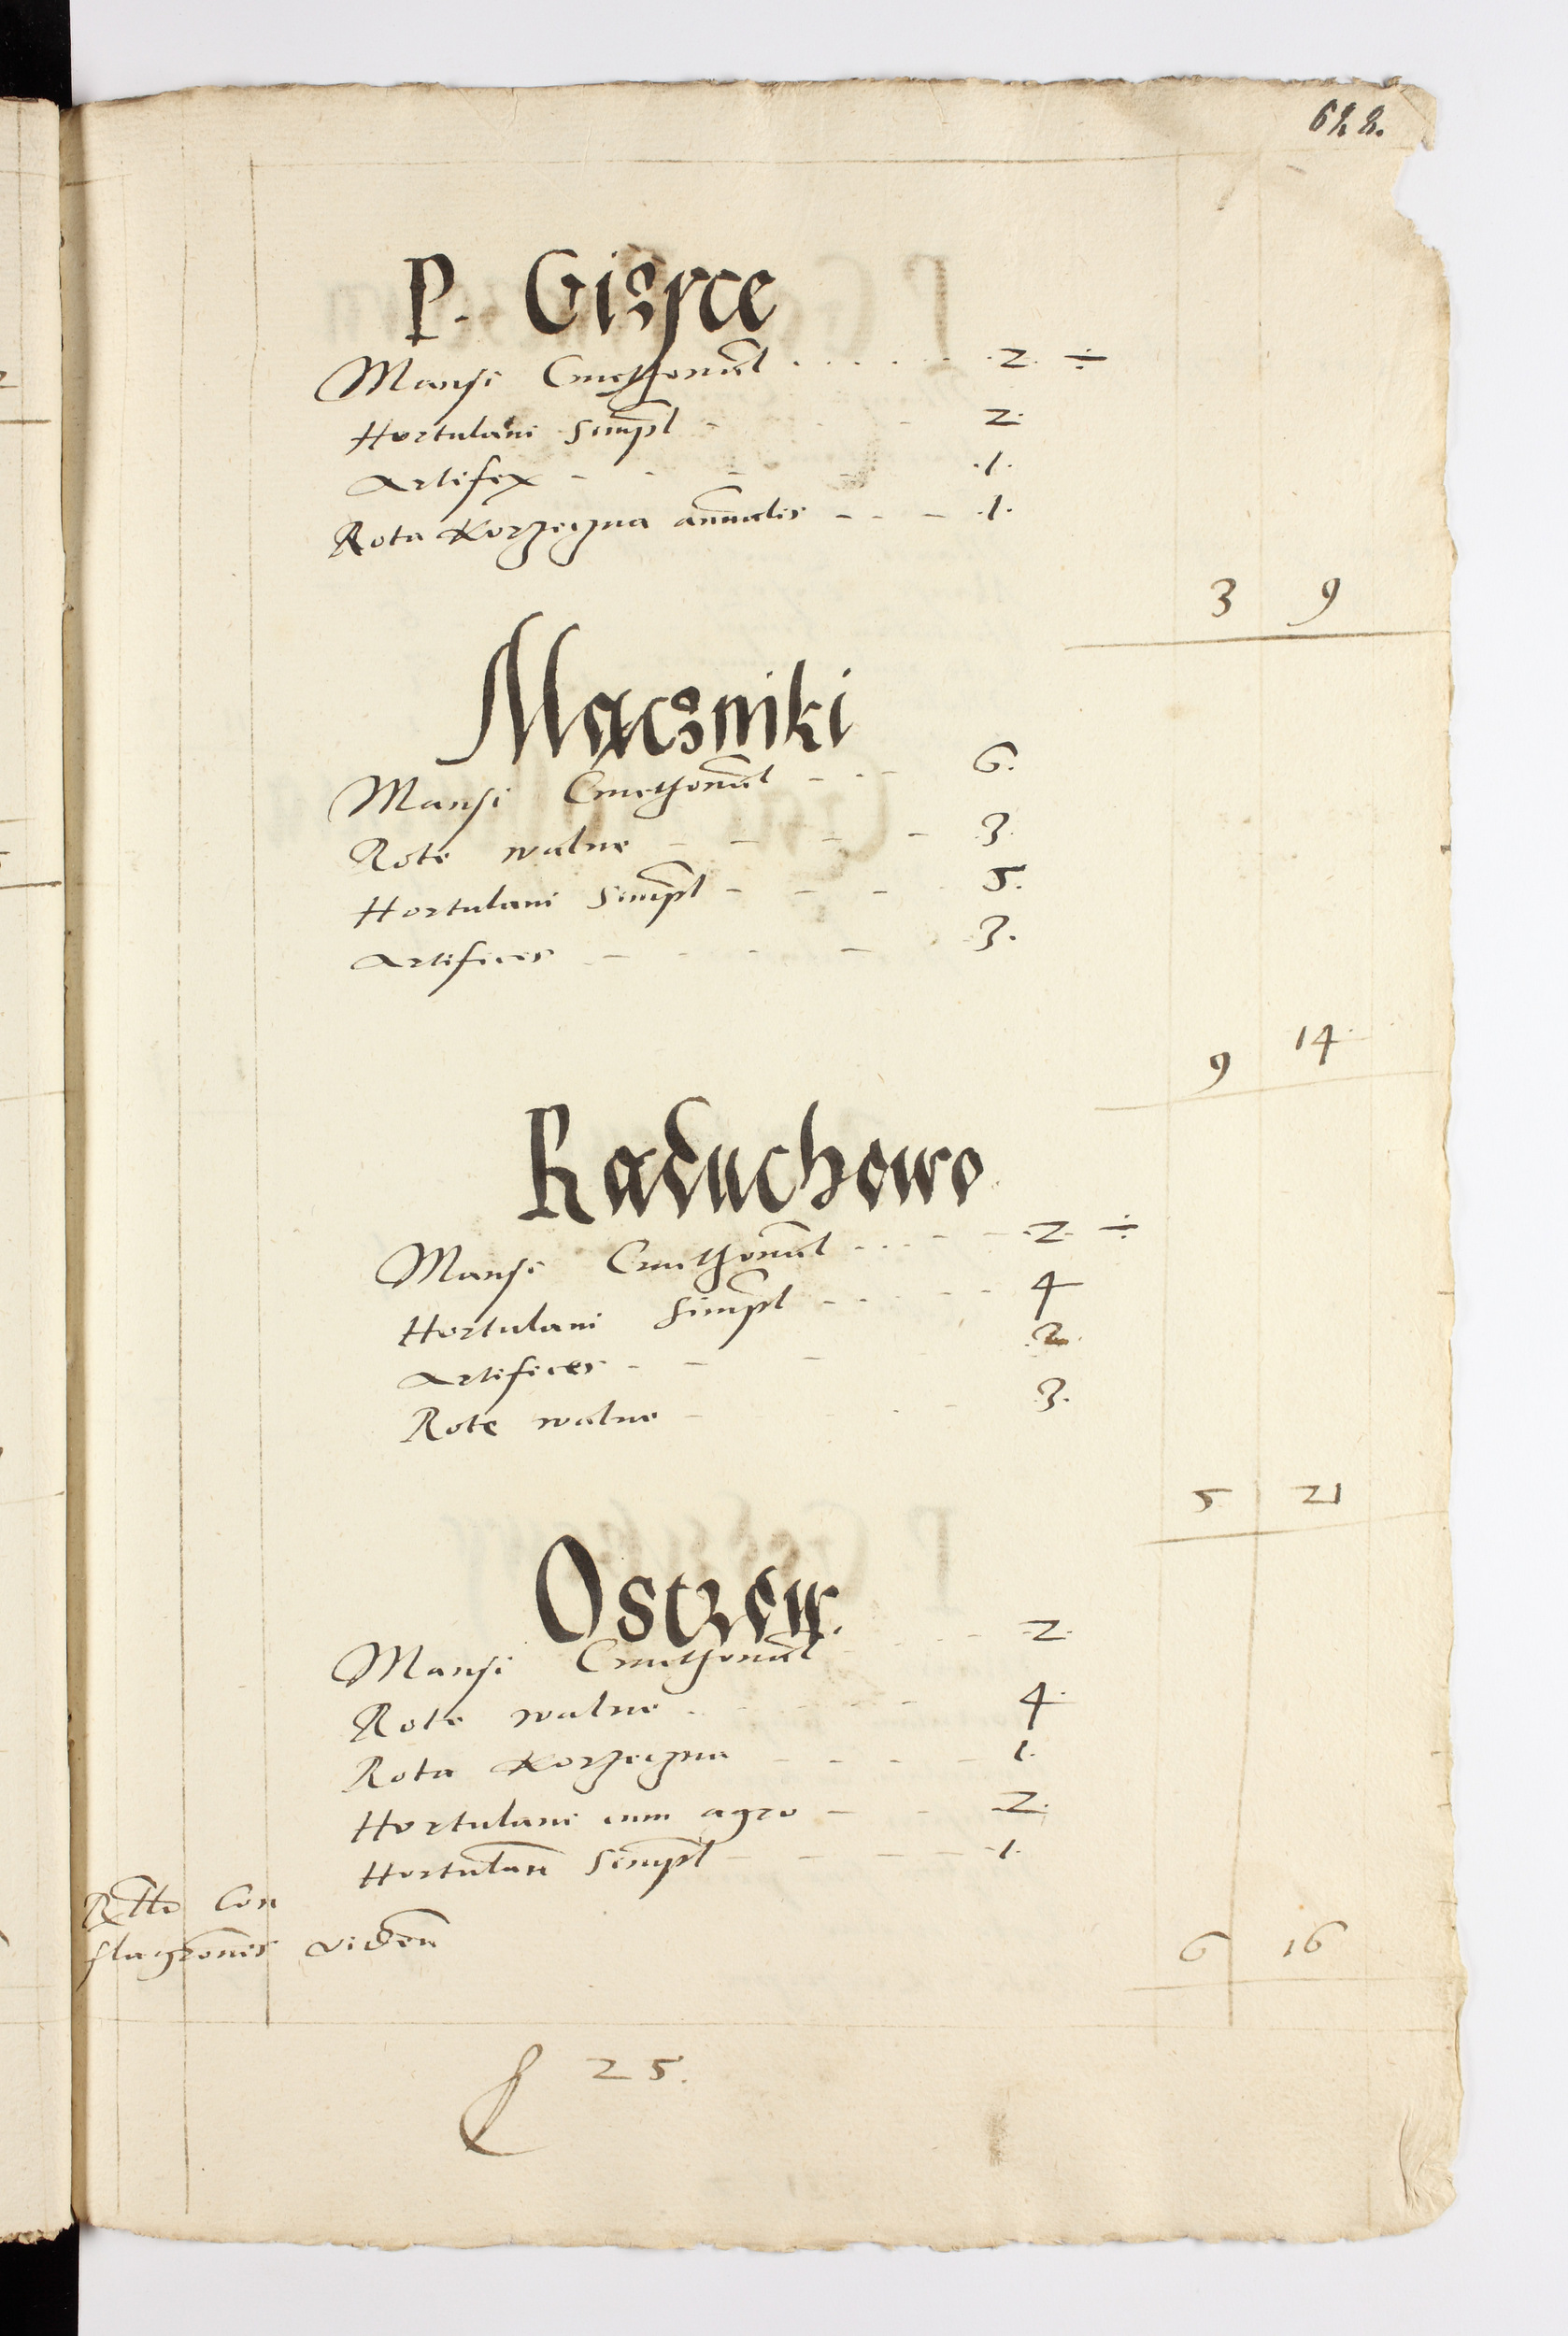 628.
P. Gizice
Mansi Cmethonal . . . . . . 2. ÷
Hortulani Simpl - - - 2.
Artifex - - - - .1.
Rota Korzeczna annualis - - - .1.
3 9
Mączniki
Mansi Cmethonal - - - 6.
Rote walne - - - - 3.
Hortulani Simpl - - - 5.
Artifices - - - - 3.
9 14
Raduchowo
Mansi Cmethonal . . . - - 2. ÷
Hortulani Simpl - - - - 4
Artifices - - - 2.
Rote walne - - - 3.
5 21
Ostrow.
Mansi Cmethonal - - - 2.
Rote walne - - - - 4.
Rota Korzeczna - - - - 1.
Hortulani cum agro - - 2.
Hortulan Simpl - - - - 1.
Con
flagronis viden
6 16
25.